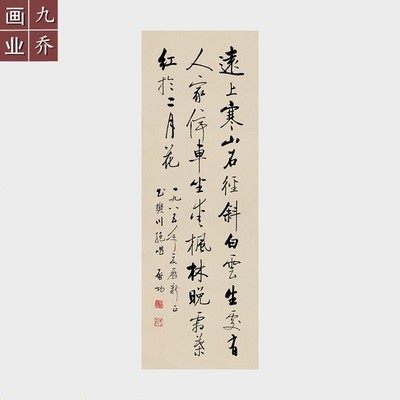 九乔
画业
遠上寒山石徑斜白雲生處有
人家停車坐愛楓林晚霜葉
紅於二月花
一九八五年夏曆新正
书樊川絕唱 啟功